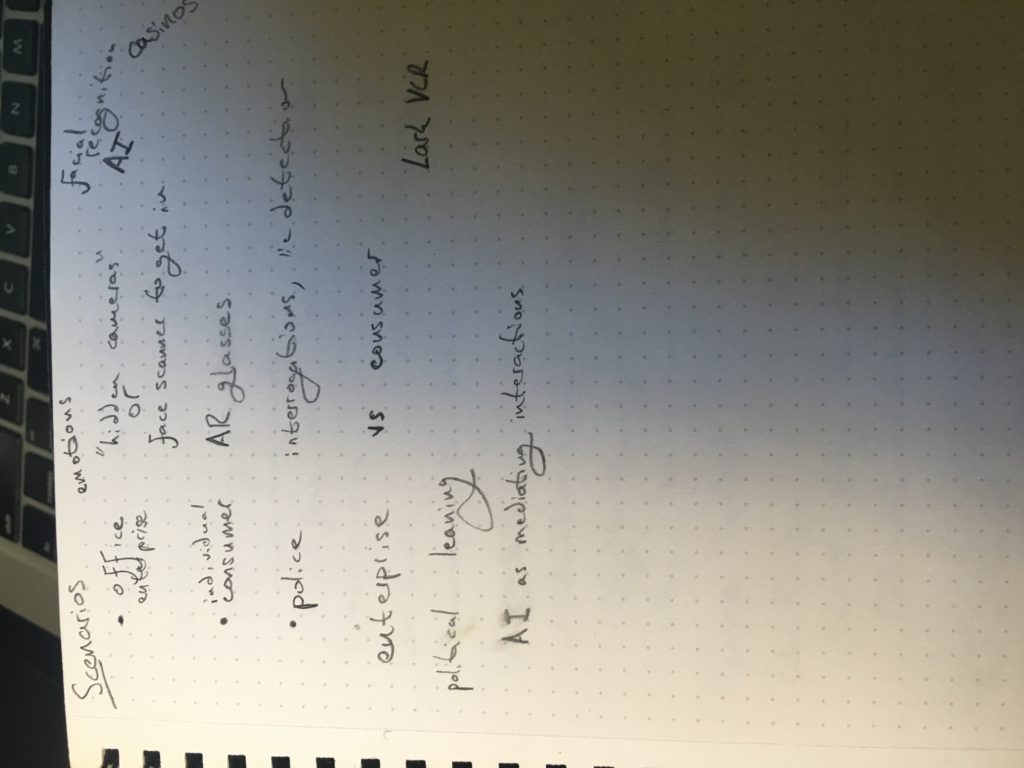 Scenarios
emotions
facial
recognition
AI
casinos
• office
enterprise
"hidden cameras"
or
face scanner to get in
individual
• consumer
AR glasses
• police
interrogations, lie detection
enterprise vs consumer
Lark VCR
political leaning
AI as mediating interactions
Z X C V B N M
⌘